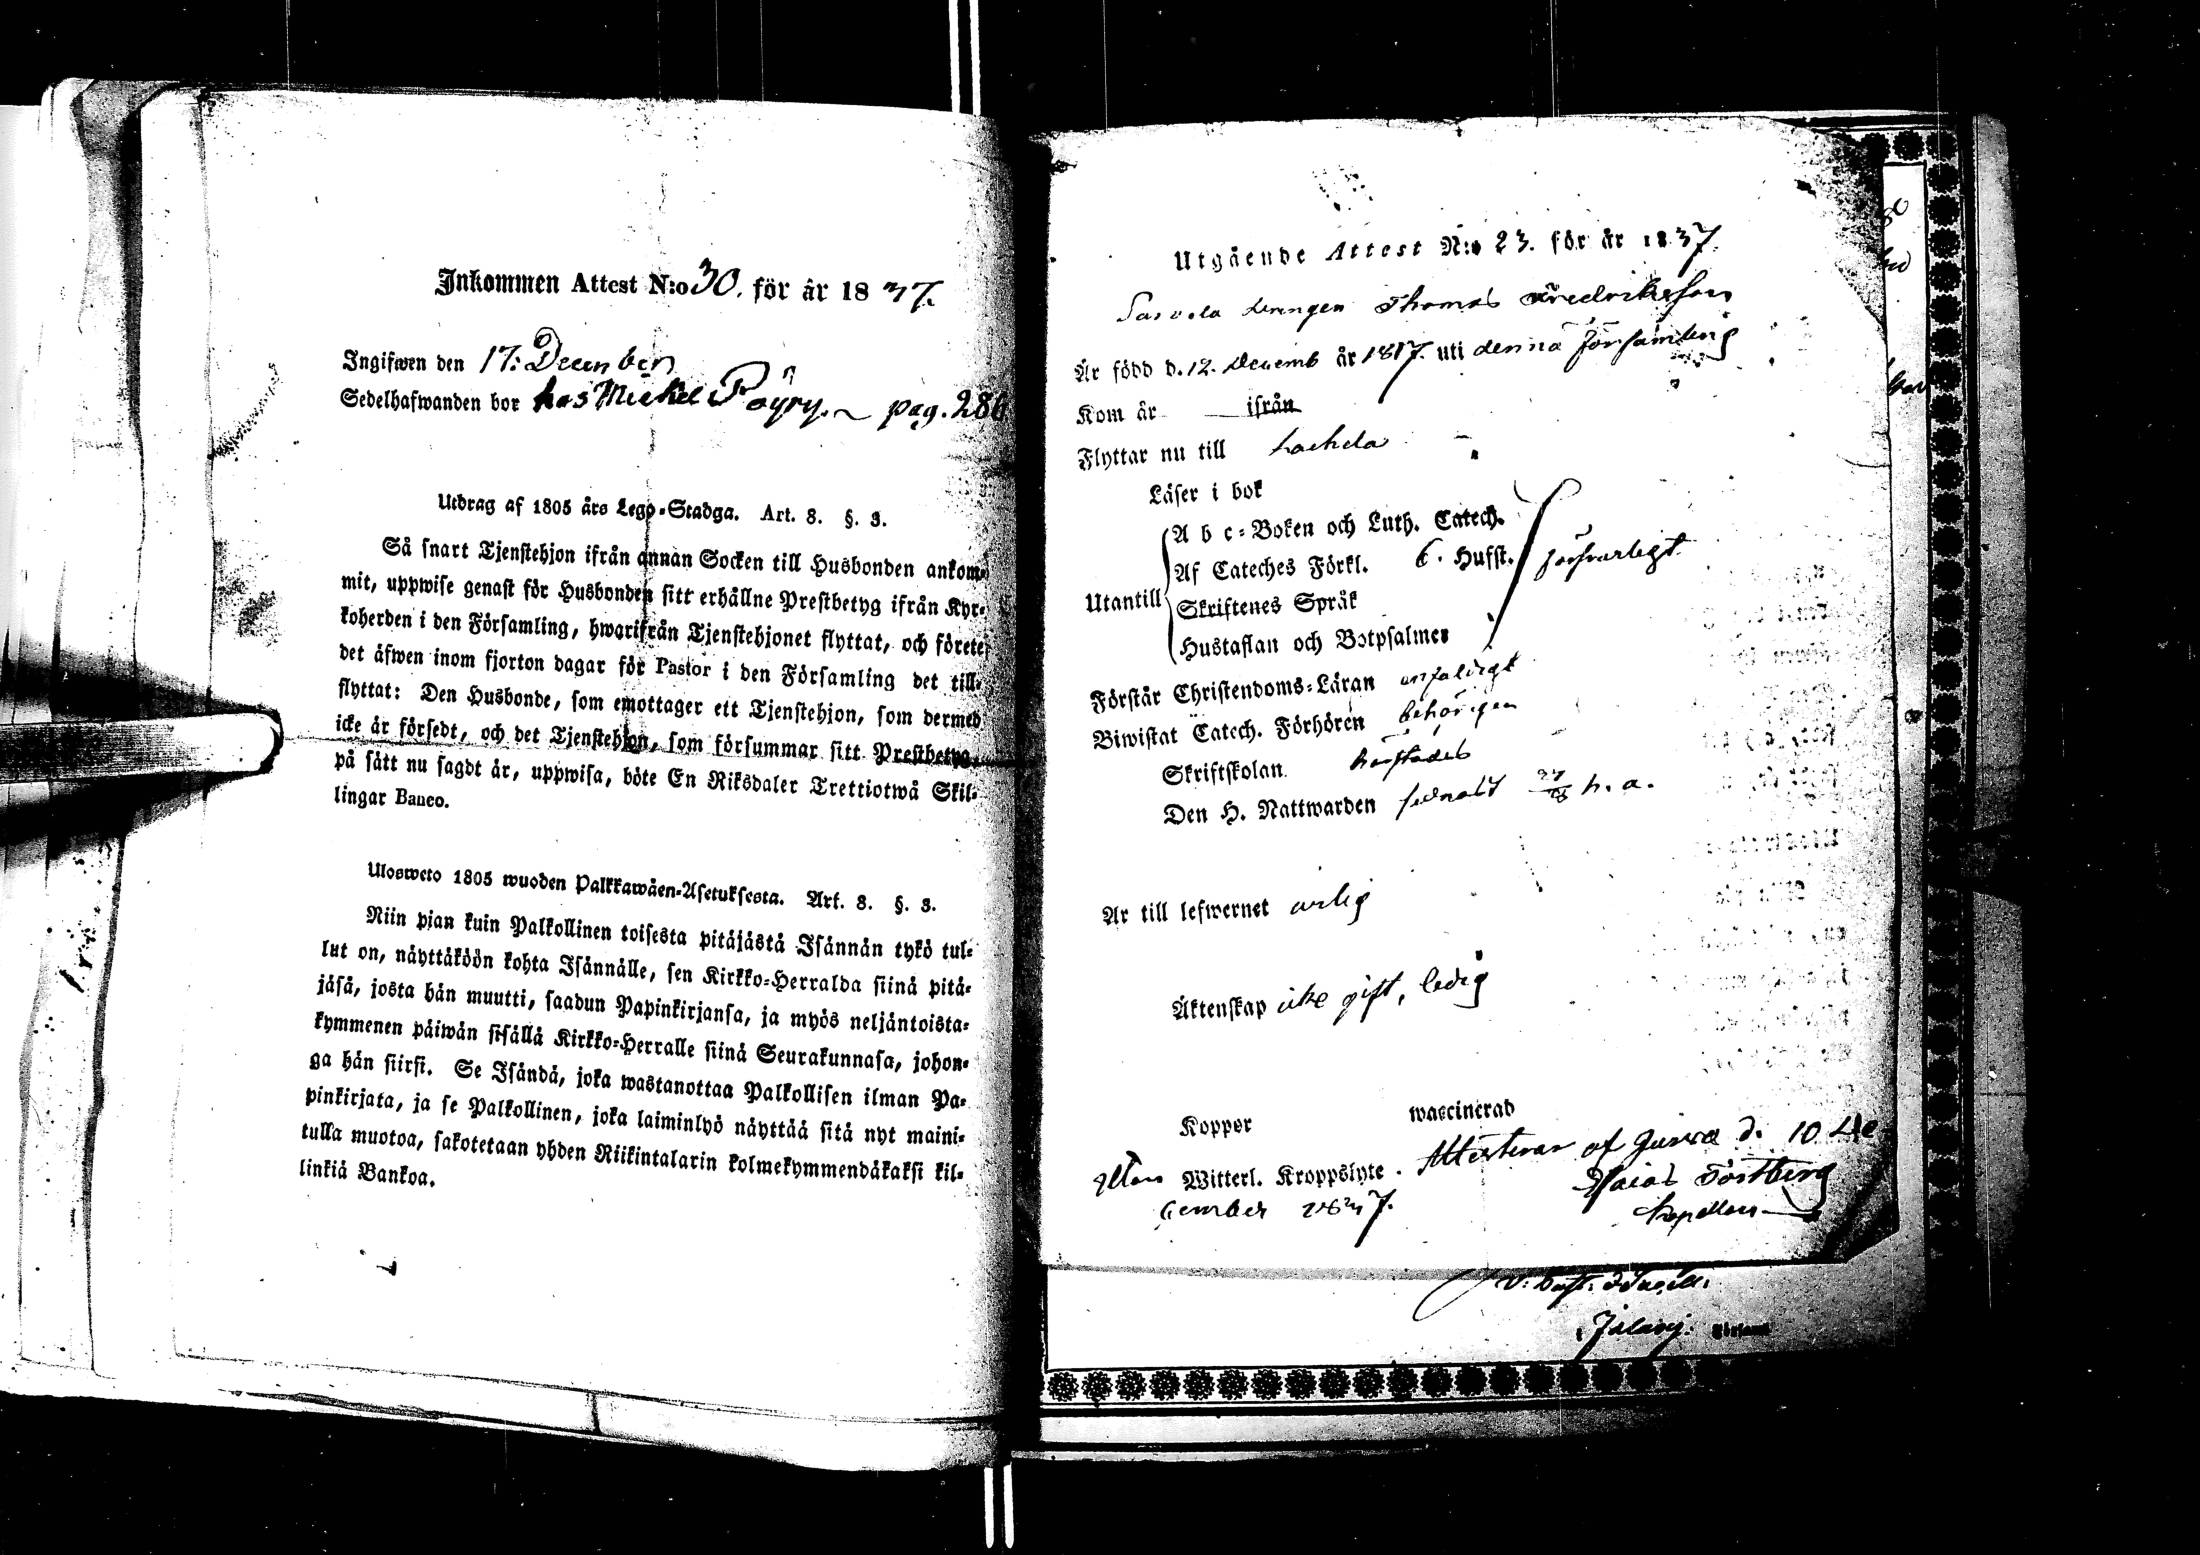 Inkommen Attest N:o 30. för år 1837.
Ingifwen den 17: December
Sedelhafwanden bor hos Michel Pöyry. ~ pag. 286
Utdrag af 1805 års Lego-Stadga. Art. 8. §. 3.
Så snart Tjenstehjon ifrån annan Socken till Husbonden ankom-
mit, uppwise genast för Husbonden sitt erhållne Prestbetyg ifrån Kyr-
koherden i den Församling, hwarifrån Tjenstehjonet flyttat, och förete
det äfwen inom fjorton dagar för Pastor i den Församling det till-
flyttat: Den Husbonde, som emottager ett Tjenstehjon, som dermed
icke är försedt, och det Tjenstehjon, som försummar sitt Prestbetyg
på sätt nu sagdt är, uppwisa, böte En Riksdaler Trettiotwå Skil-
lingar Banco.
Ulosweto 1805 wuoden Palkkawäen-Asetuksesta. Art. 8. §. 3.
Niin pian kuin Palkollinen toisesta pitäjästä Isännän tykö tul-
lut on, näyttäköön kohta Isännälle, sen Kirkko-Herralda siinä pitä-
jäsä, josta hän muutti, saadun Papinkirjansa, ja myös neljäntoista-
kymmenen päiwän sisällä Kirkko-Herralle siinä Seurakunnasa, johon-
ga hän siirsi. Se Isändä, joka wastanottaa Palkollisen ilman Pa-
pinkirjata, ja se Palkollinen, joka laiminlyö näyttää sitä nyt maini-
tulla muotoa, sakotetaan yhden Riikintalarin kolmekymmendäkaksi kil-
linkiä Bankoa.
Utgående Attest N:o 23. för år 1837.
drengen Thomas Fredriksson
Är född d. 12. Decemb år 1817. uti denna Församling
Kom år ifrån
Flyttar nu till
Läser i bok
A b c-Boken och Luth. Catech.
Af Cateches Förkl. 6. Hufst. försvarligt
Utantill
Skriftenes Språk
Hustaflan och Botpsalmer
Förstår Christendoms-Läran enfaldigt
Biwistat Catech. Förhören behörigen
Skriftskolan
Den H. Nattwarden sednast h. a.
Är till lefwernet ärlig
Äktenskap icke gift, ledig
Kopper waccinerad
utan Witterl. Kroppslyte. Attesterar af Juswa d. 10 De
cember 1837. Esaias Förtberg
Kapellan